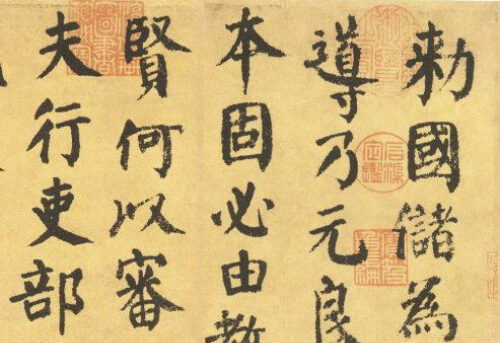 勅國儲為
導乃元良
本固必由教
賢何以審
夫行吏部